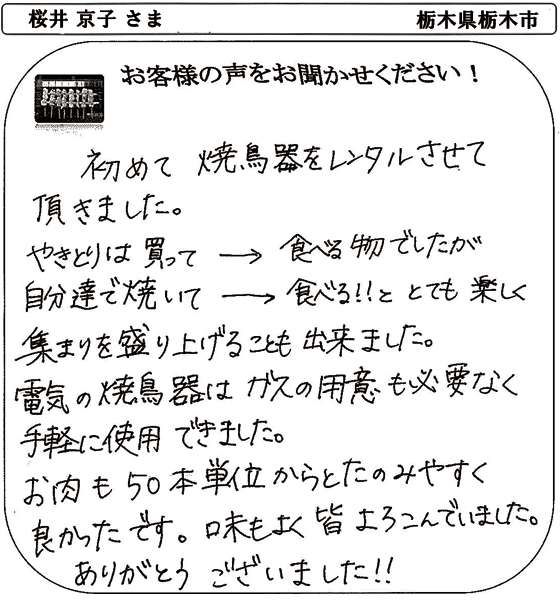 桜井 京子 さま
栃木県栃木市
お客様の声をお聞かせください！
初めて 焼鳥器をレンタルさせて
頂きました。
やきとりは 買って → 食べる物でしたが
自分達で焼いて → 食べる!!と とても 楽しく
集まりを盛り上げることも 出来ました。
電気の焼鳥器は ガスの用意も必要なく
手軽に使用 できました。
お肉も 50本単位からとたのみやすく
良かったです。味もよく 皆 よろこんでいました。
ありがとう ございました!!